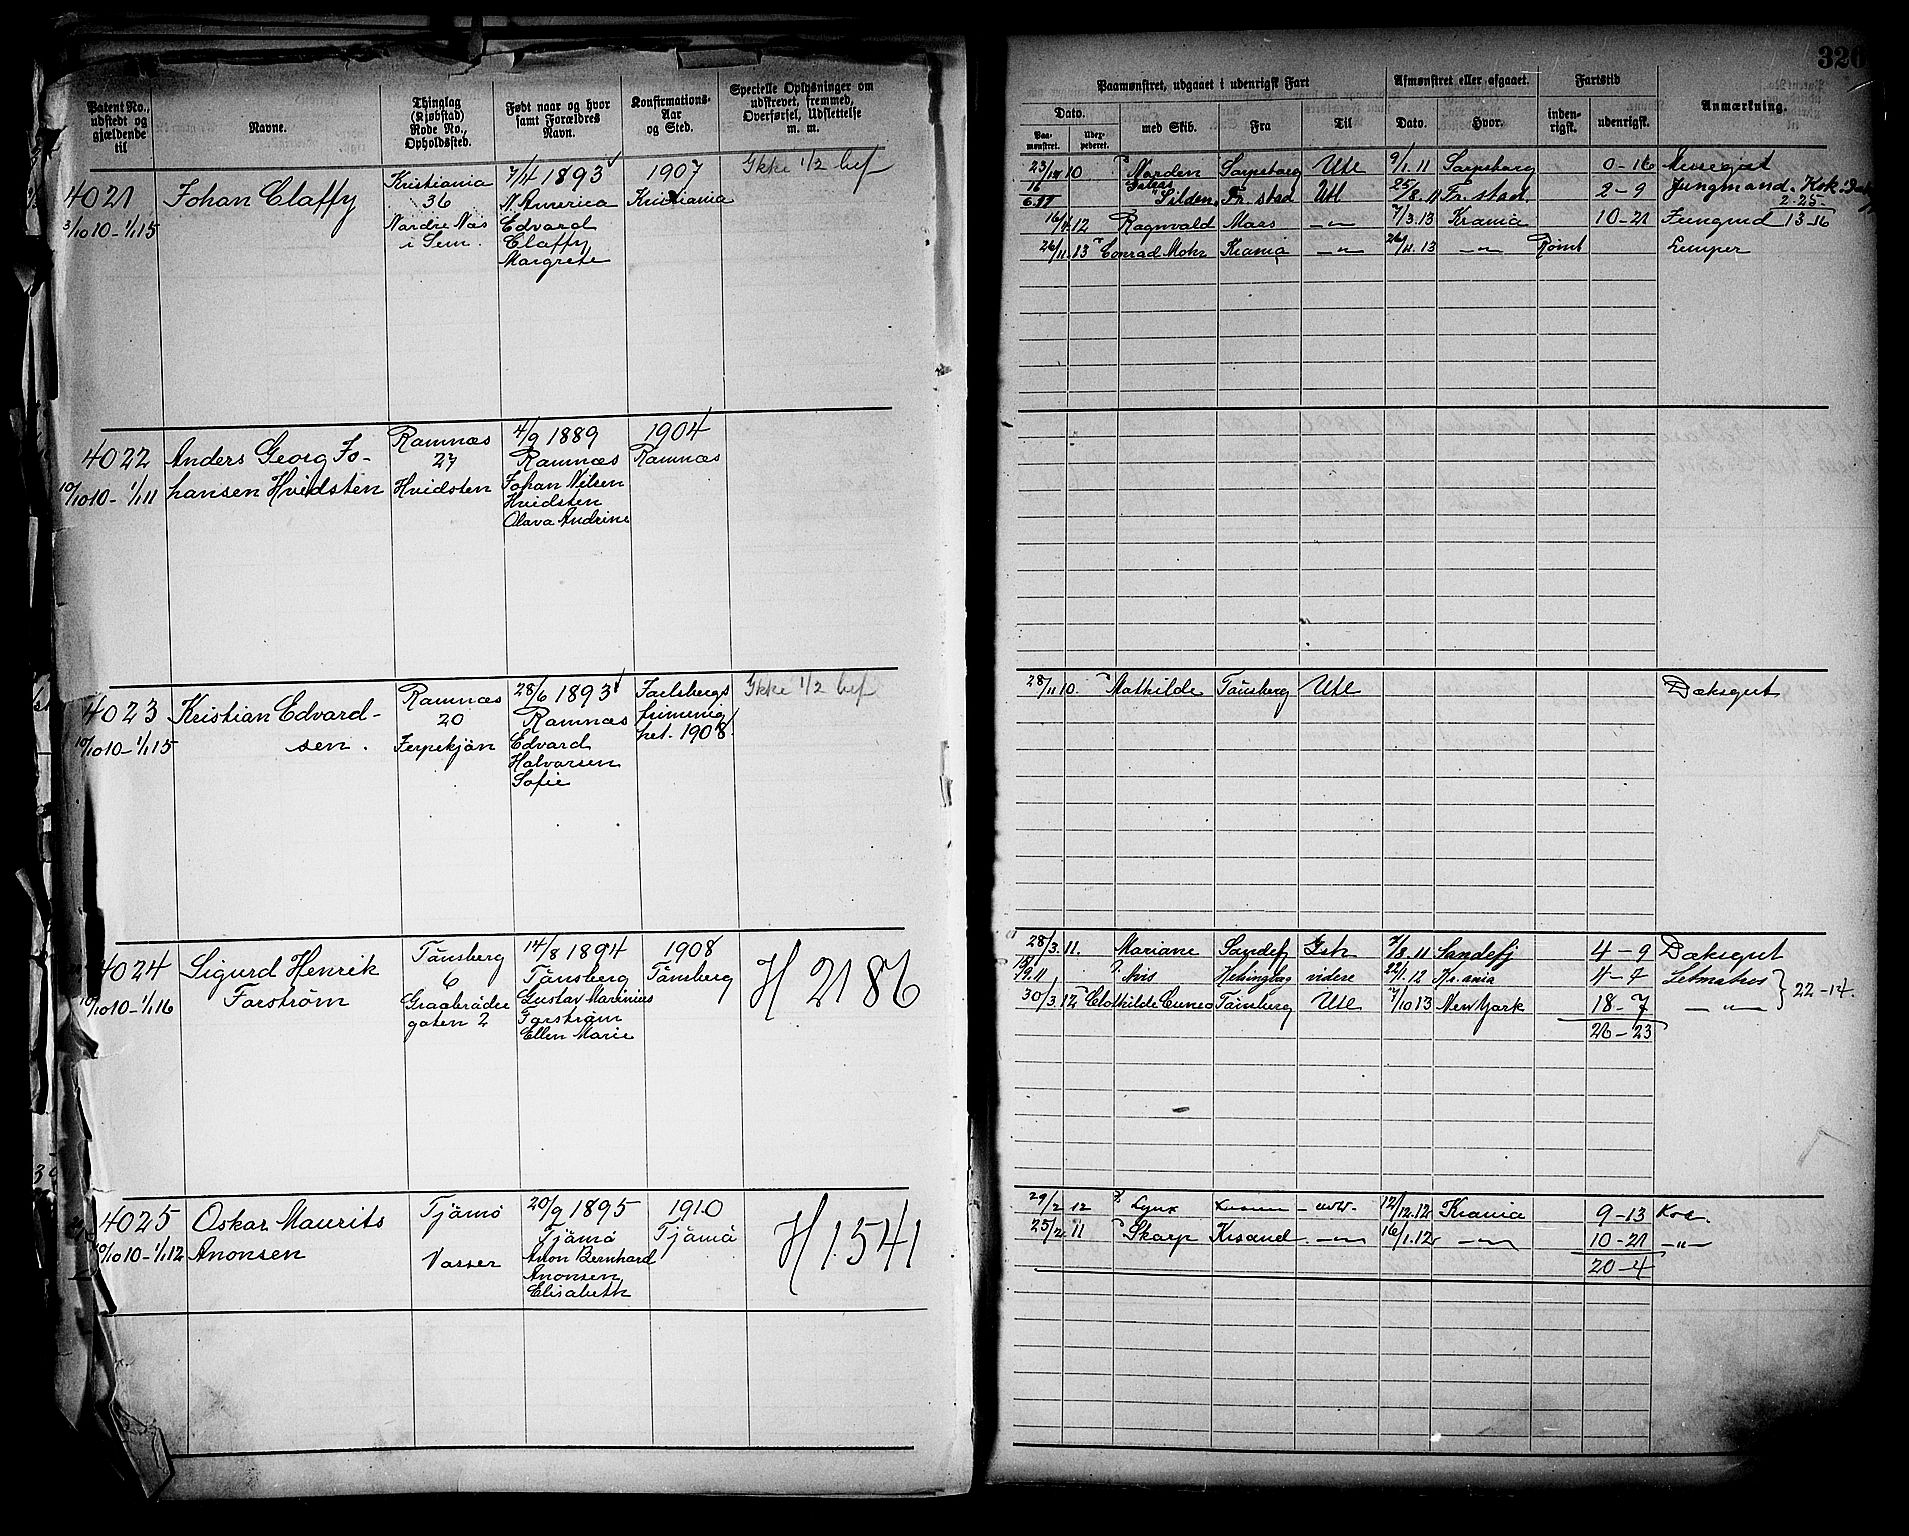 326
Patent No., udstedt og gjældende til
Navne.
Thinglag (Kjøbstad) Rode No., Opholdssted.
Født naar og hvor samt Forældres Navn.
Konfirmations-Aar og Sted.
Specielle Oplysninger om udskrevet, fremmed, Overførsel, Udslettelse m. m.
Paamønstret, udgaaet i udenrigsk Fart
Afmønstret eller afgaaet.
Fartstid
Anmærkning.
Dato.
Paa-mønstret.
Udex-pederet.
med Skib.
Fra
Til
Dato.
Hvor.
inden-rigsk.
udenrigsk.
4021
3/10 10 - 1/1 15
Johan Claffy
Kristiania
36
Nordre Næs
i Sem.
7/4 1893
N. America
Edvard
Claffy
Margrete
1907
Kristiania
Ikke 1/2 bef
10 Norden Sarpsborg Utl 9/1.11 Sarpsborg 0-16
Silden Fr. stad Utl 25/8.11 Fr. stad. 2-9 Jungmand.
2-25
16/4 12 Ragnvald Moss -"- 7/3.13 Krania 10-21 Jungmd 13-16
26/11.13 Conrad Mohr Krania -"- 26/11.13 -"- Rømt Lemper
4022
10/10 10 - 1/1 11
Anders Georg Jo-
hansen Hvidsten
Ramnæs
27
Hvidsten
4/9 1889
Ramnæs
Johan Nilsen
Hvidsten
Olava Andrine
1904
Ramnæs
4023
10/10 10 - 1/1 15
Kristian Edvard-
sen.
Ramnæs
20
28/6 1893
Ramnæs
Edvard
Halvorsen
Sofie
Jarlsbergs
frimenig
het. 1908.
Ikke 1/2 bef
28/11 10. Mathilde Tønsberg Utl Dæksgut
4024
10/10 10 - 1/1 16
Sigurd Henrik
Forstrøm
Tønsberg
6
Graabrødre
gaten 2
14/8 1894
Tønsberg
Gustav Martinius
Forstrøm
Ellen Marie
1908
Tønsberg
H 2186
28/3.11. Mariane Sandefj 7/8.11 Sandefj 4-9 Dæksgut
Avis Helsingborg videre 22/1.12 Kr.ania 4-7 Letmatros
30/3.12 Clothilde Cuneo Tønsberg Utl 7/10 13 New York 18-7 -"- } 22-14.
26-23
4025
10/10 10 - 1/1 12
Oskar Maurits
Anonsen
Tjømø
Vasser
20/9 1895
Tjømø
Anon Bernhard
Anonsen
Elisabeth
1910
Tjømø
H 1541
29/2 12 Lynx 12/12.12 Krania 9-13 Kok.
25/2 11 Skarp Krsand. -"- 16/1.12 -"- 10-21 -"-
20-4